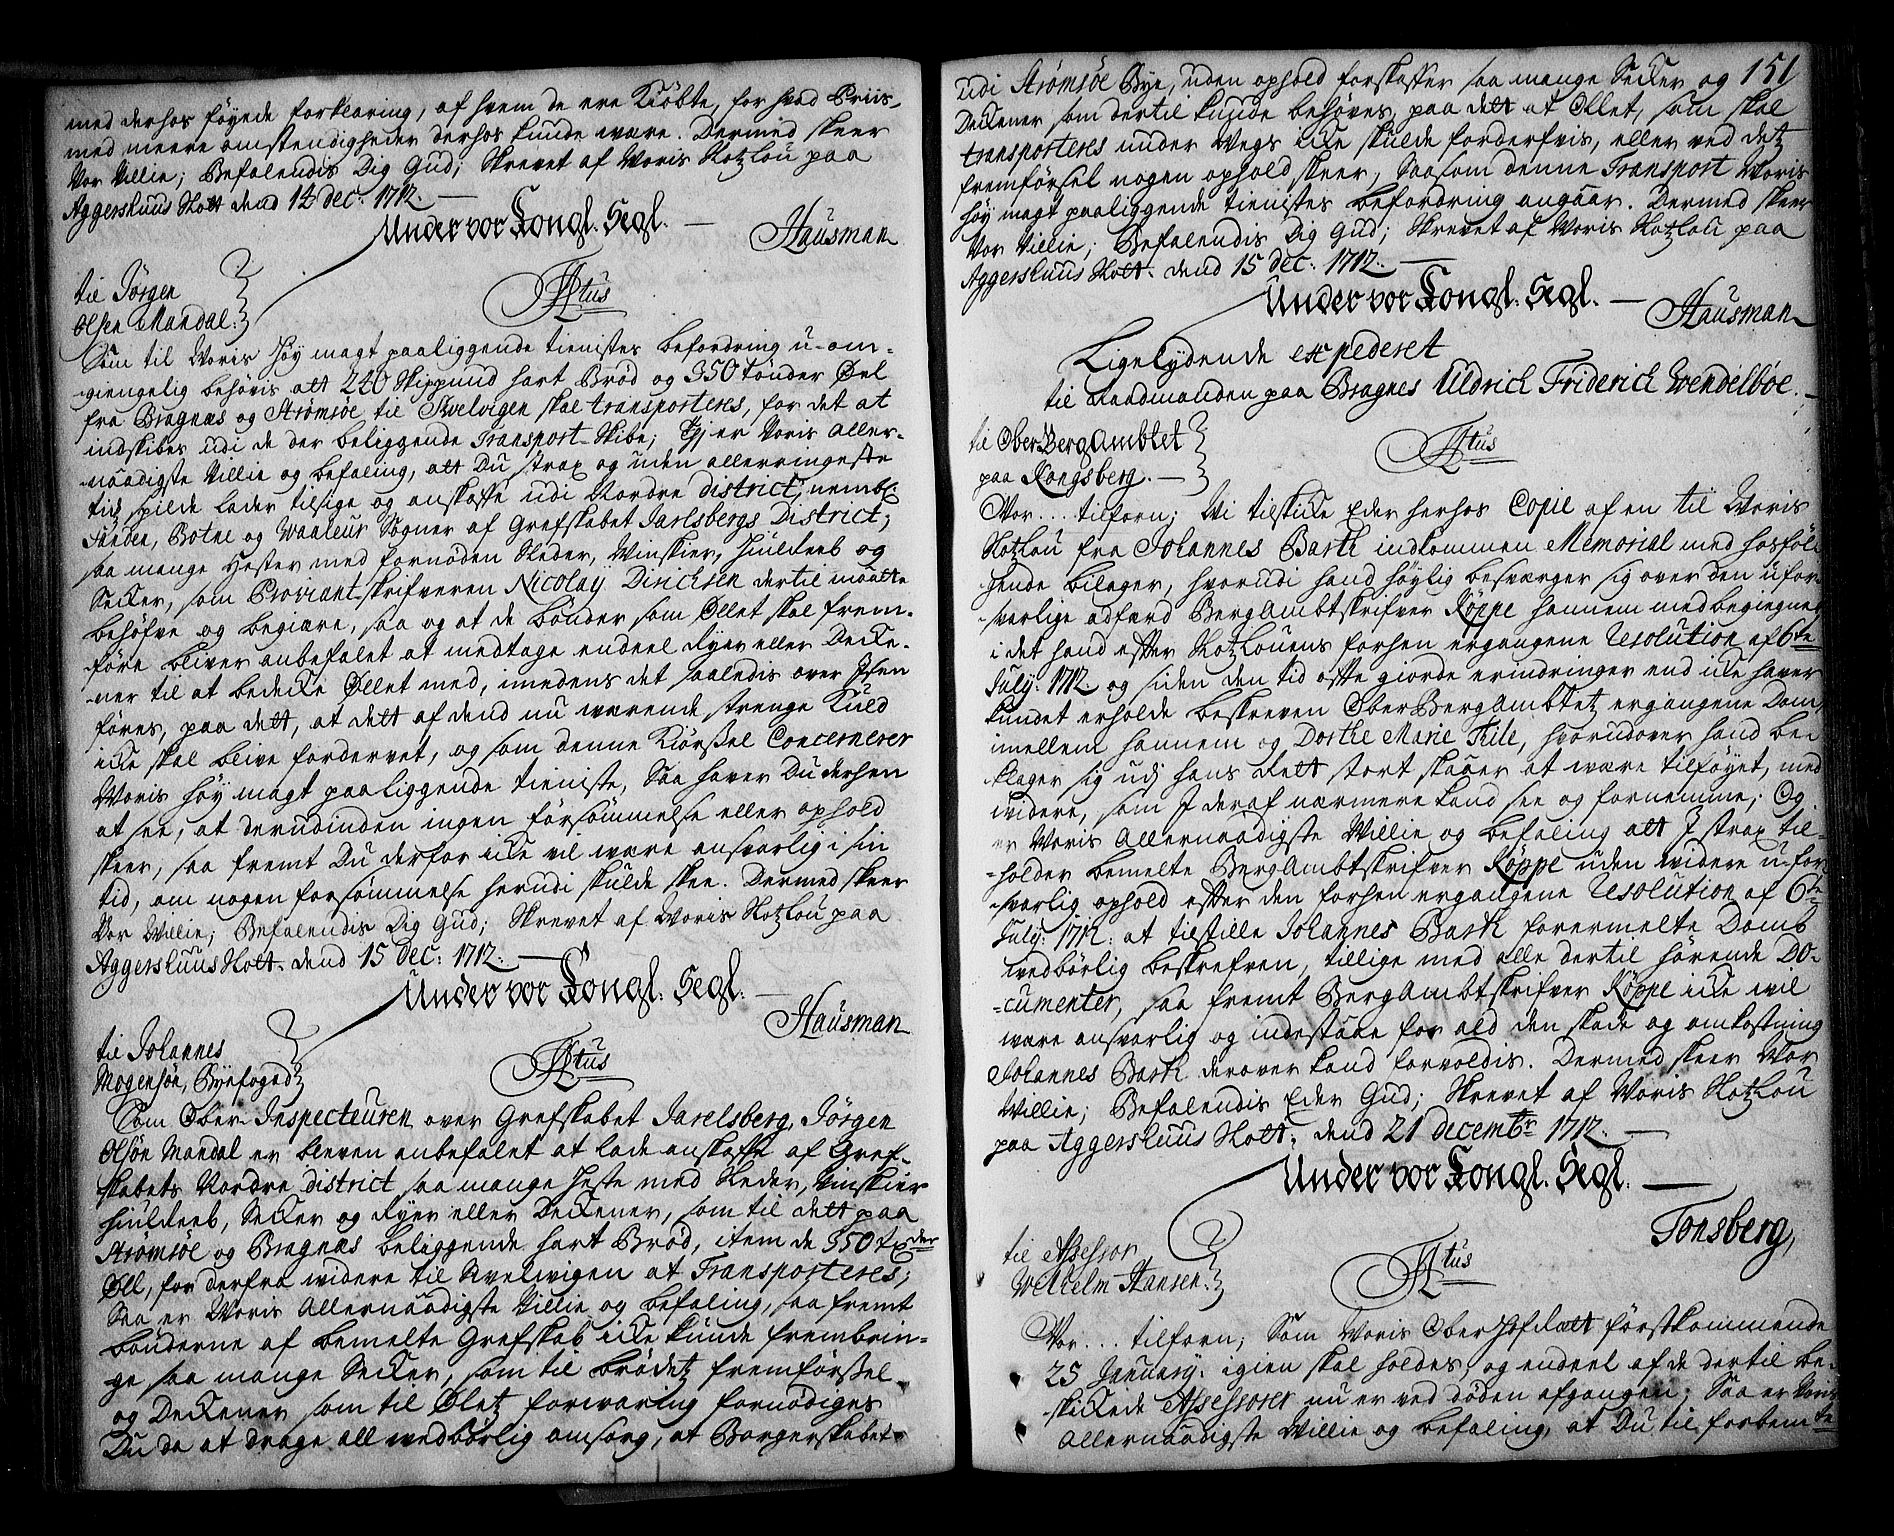 med derhos føyede forklaring, af hvem de ere Kiöbte, for hvad Priis,
med meere omstendigheder derhos kunde være. Dermed skeer
Vor Villie; Befalendis Dig Gud; Skrevet af Voris Slotzlou paa
Aggershuus Slott dend 14 dec. 1712.
Under vor Kongl. Segl.
Hausman
til Jørgen
Olsen Mandal.
Ftus
Som til Voris høy magt paaliggende tienistes befordring u-om-
giengelig behøvis att 240 Skippund hart Brød og 350 tønder Øel
fra Bragnæs og Strømsøe til Svelvigen skal transporteres, for det at
indskibes udi de der beliggende Transport-Skibe; Thj er Voris aller-
naadigste Villie og befaling, att Du strax og uden allerringeste
tids spilde lader tilsige og anskaffe udi Nordre district, nembl:
Sanden, Botne og Waaleur Sogner af Grefskabet Jarlsbergs District,
saa mange Hester med fornøden Sleder, Winskier, Hiuldreeb og
Secker, som Proviantskrifveren Nicolaij Dirichsen dertil maatte
behøfve og begiære, saa og at de bønder som Øllet skal frem-
føre bliver anbefalet at medtage endeel Ryer eller Decke-
ner til at bedecke Øllet med, imedens det saaledis over Jsen
føres, paa dett, at dett af dend nu værende strenge Kuld
icke skal blive fordervet, og som denne Kiørssel Concernerer
Woris høy magt paaliggende tieniste, Saa haver Du derhen
at see, at derudinden ingen forsømmelse eller ophold
skeer, saa fremt Du derfor icke vil være ansvarlig i sin
tid, om nogen forsømmelse herudi skulde skee. Dermed skeer
Vor Willie; Befalendis Dig Gud; Skrevet af Woris Slotzlou paa
Aggershuus Slott. dend 15 dec: 1712.
Under vor Kongl. Segl.
Hausman
til Johannes
Mogensøn, Byefoged
Ftus
Som Ober-Inspecteuren over Grefskabet Jarelsberg, Jørgen
Olsøn Mandal er bleven anbefalet at lade anskaffe af Gref-
skabets Nordre district saa mange Heste med Sleder, Vinskier
Hiuldreeb, Secker og Ryer eller Deckener, som til dett paa
Strømsøe og Bragnæs beliggende hart Brød, item de 350 tønder
Øll, for derfra widere til Svelwigen at Transporteres;
Saa er Woris Allernaadigste Villie og befaling, saa fremt
bønderne af bemelte Grefskab icke kunde frembrin-
ge saa mange Secker, som til brødetz fremførssel
og Deckener som til Øletz forvaring fornødiges
Du da at drage all wedbørlig omsorg, at Borgerskabet
151
udi Strømsøe Bye, uden ophold forskaffer saa mange Secker og
Deckener som dertil kunde behøves, paa dett at Øllet, som skal
transporteres under Wegs icke skulde forderfvis, eller ved det
fremførsel nogen ophold skeer, Saasom denne Transport Woris
høy magt paaliggende tienistes befordring angaar. Dermed skeer
Vor Villie; Befalendis Dig Gud; Skrevet af Woris Slotzlou paa
Aggershuus Slott. dend 15 dec: 1712.
Under vor Kongl. Segl.
Hausman
Ligelydende expederet
til Raadmanden paa Bragnes Uldrich Friderich Wendelboe.
til OberBergAmbtet
paa Kongsberg.
Ftus
Vor... tilforn; Wi tilskicke Eder herhos Copie af en til Woris
Slotzlou fra Johannes Barth indkommen Memorial med hosføl-
gende bilager, hvorudi hand høylig besværger sig over den ufor-
svarlige adfærd BergAmbtskrifver Köppe hannem med begiegnet
i det hand efter Slotzlouens forhen ergangene Resolution af 6te
July: 1712. og siden den tid ofte giorde erindringer end icke haver
kundet erholde beskreven OberBergAmbtetz ergangene Dom,
imellem hannem og Dorthe Marie Thile, hvorudover hand be-
klager sig udj hans Rett stort skaar at være tilføyet, med
widere, som J deraf nærmere kand see og fornemme; Og
er Woris Allernaadigste Willie og befaling att J strax til-
holder bemelte BergAmbtskrifver Köppe uden widere u-for-
svarlig ophold efter den forhen ergangene Resolution af 6te
July: 1712. at tilstille Johannes Barth forermelte Domb
wedbørlig beskrefven, tillige med alle dertil hørende Do-
cumenter, saa fremt BergAmbtskrifver Köppe icke wil
være ansvarlig og indestaae for ald den skade og omkostning
Johannes Barth derover kand forvoldis. Dermed skeer Wor
Willie; Befalendis Eder Gud; Skrevet af Woris Slotzlou
paa Aggershuus Slott, dend 21 decembr 1712.
Under vor Kongl. Segl.
Tonsberg,
til Assessor
Welhelm Hansen.
Ftus
Vor... tilforn; Som Woris Ober Hof Rætt førstkommende
25 January. igien skal holdes, og endeel af de dertil be-
skickede Assessorer nu er ved døden afgangen; Saa er Voris
Allernaadigste Willie og befaling, at Du til forbemte